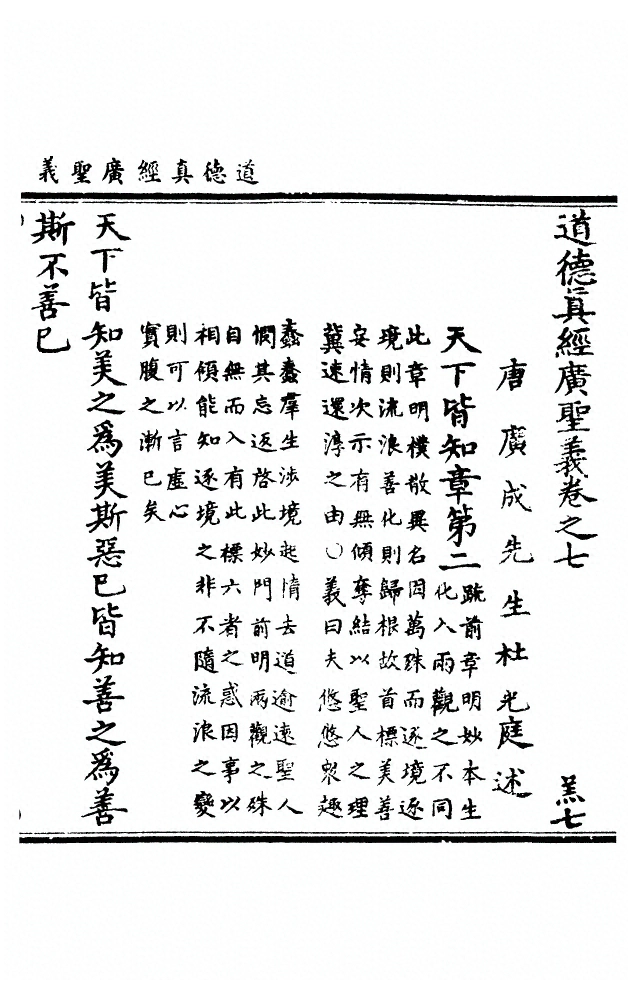 道德真經廣聖義
道德真經廣聖義卷之七 羔七
唐廣成先生杜光庭述
天下皆知章第二
疏前章明妙本生
化入兩觀之不同
此章明樸散異名因萬殊而逐境逐
境則流浪善化則歸根故首標美善
安情次示有無傾奪結以聖人之理
冀速還淳之由○義曰夫悠悠眾趣
蠢蠢羣生涉境起情去道逾遠聖人
憫其忘返啓此妙門前明兩觀之殊
自無而入有此標六者之惑因事以
相傾能知逐境之非不隨流浪之變
則可以言虛心
實腹之漸巳矣
天下皆知美之為美斯惡巳皆知善之為善
斯不善巳